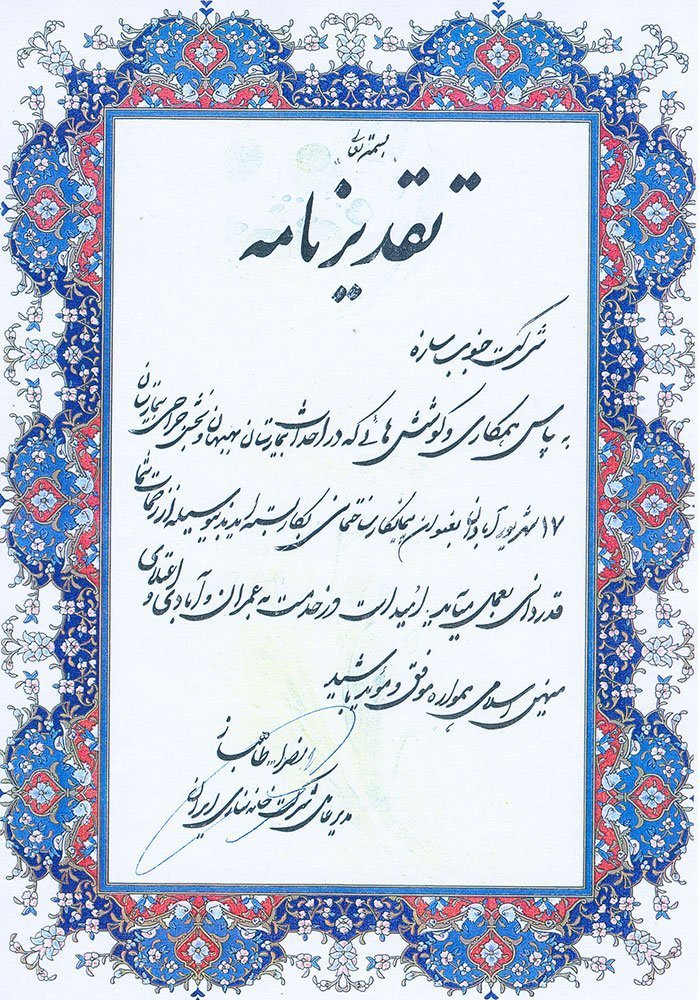 بسمه تعالی
تقدیرنامه
شرکت جنوب سازه
به پاس همکاری و کوشش هائی که در احداث بیمارستان بهبهان و بخش جراحی بیمارستان
۱۷ شهریور آبادان بعنوان پیمانکار ساختمانی بکار بسته اید بدینوسیله از زحمات شما
قدردانی بعمل میآید. امید است در خدمت به عمران و آبادی و اعتلای
میهن اسلامی همواره موفق و مؤید باشید
طالب
مدیرعامل شرکت خانه سازی ایران